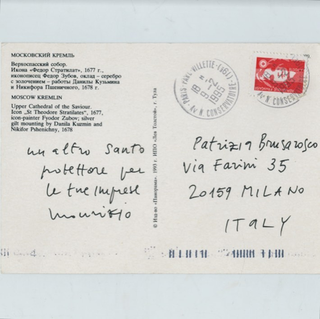 МОСКОВСКИЙ КРЕМЛЬ
Верхоспасский собор.
Икона «Федор Стратилат», 1677 г.,
иконописец Федор Зубов, оклад – серебро
с золочением – работы Данилы Кузьмина
и Никифора Пшеничного, 1678 г.
MOSCOW KREMLIN
Upper Cathedral of the Saviour.
Icon „St Theodore Stratilates", 1677,
icon-painter Fyodor Zubov; silver
gilt mounting by Danila Kuzmin and
Nikifor Pshenichny, 1678
un altro santo
protettore per
le tue imprese
maurizio
1993 г.
г. Тула
PARIS
VILLETTE
8-2
1995
Av. C
Patrizia Brusarosco
via Farini 35
20159 MILANO
ITALY